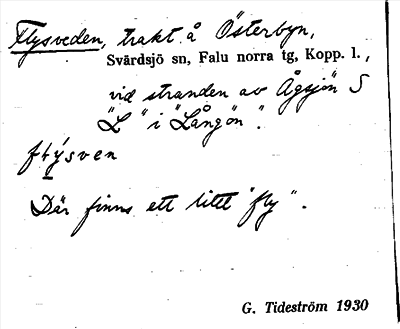 Flysveden, trakt å Österbyn,
Svärdsjö sn, Falu norra tg, Kopp. l.,
vid stranden av Ågsjön S
"L" i "Långön".
Där finns ett litet "fly".
G. Tideström 1930